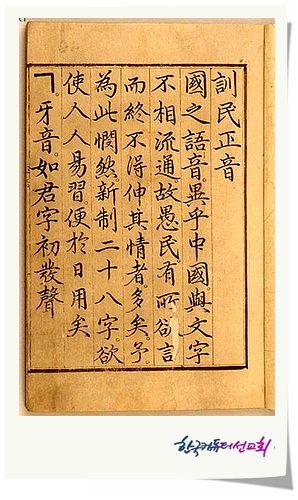 訓民正音
國之語音。異乎中國。與文字
不相流通。故愚民有所欲言
而終不得伸其情者。多矣。予。
為此憫然。新制二十八字。欲
使人人易習。便於日用矣
ㄱ。牙音。如君字初發聲
한국컴퓨터선교회